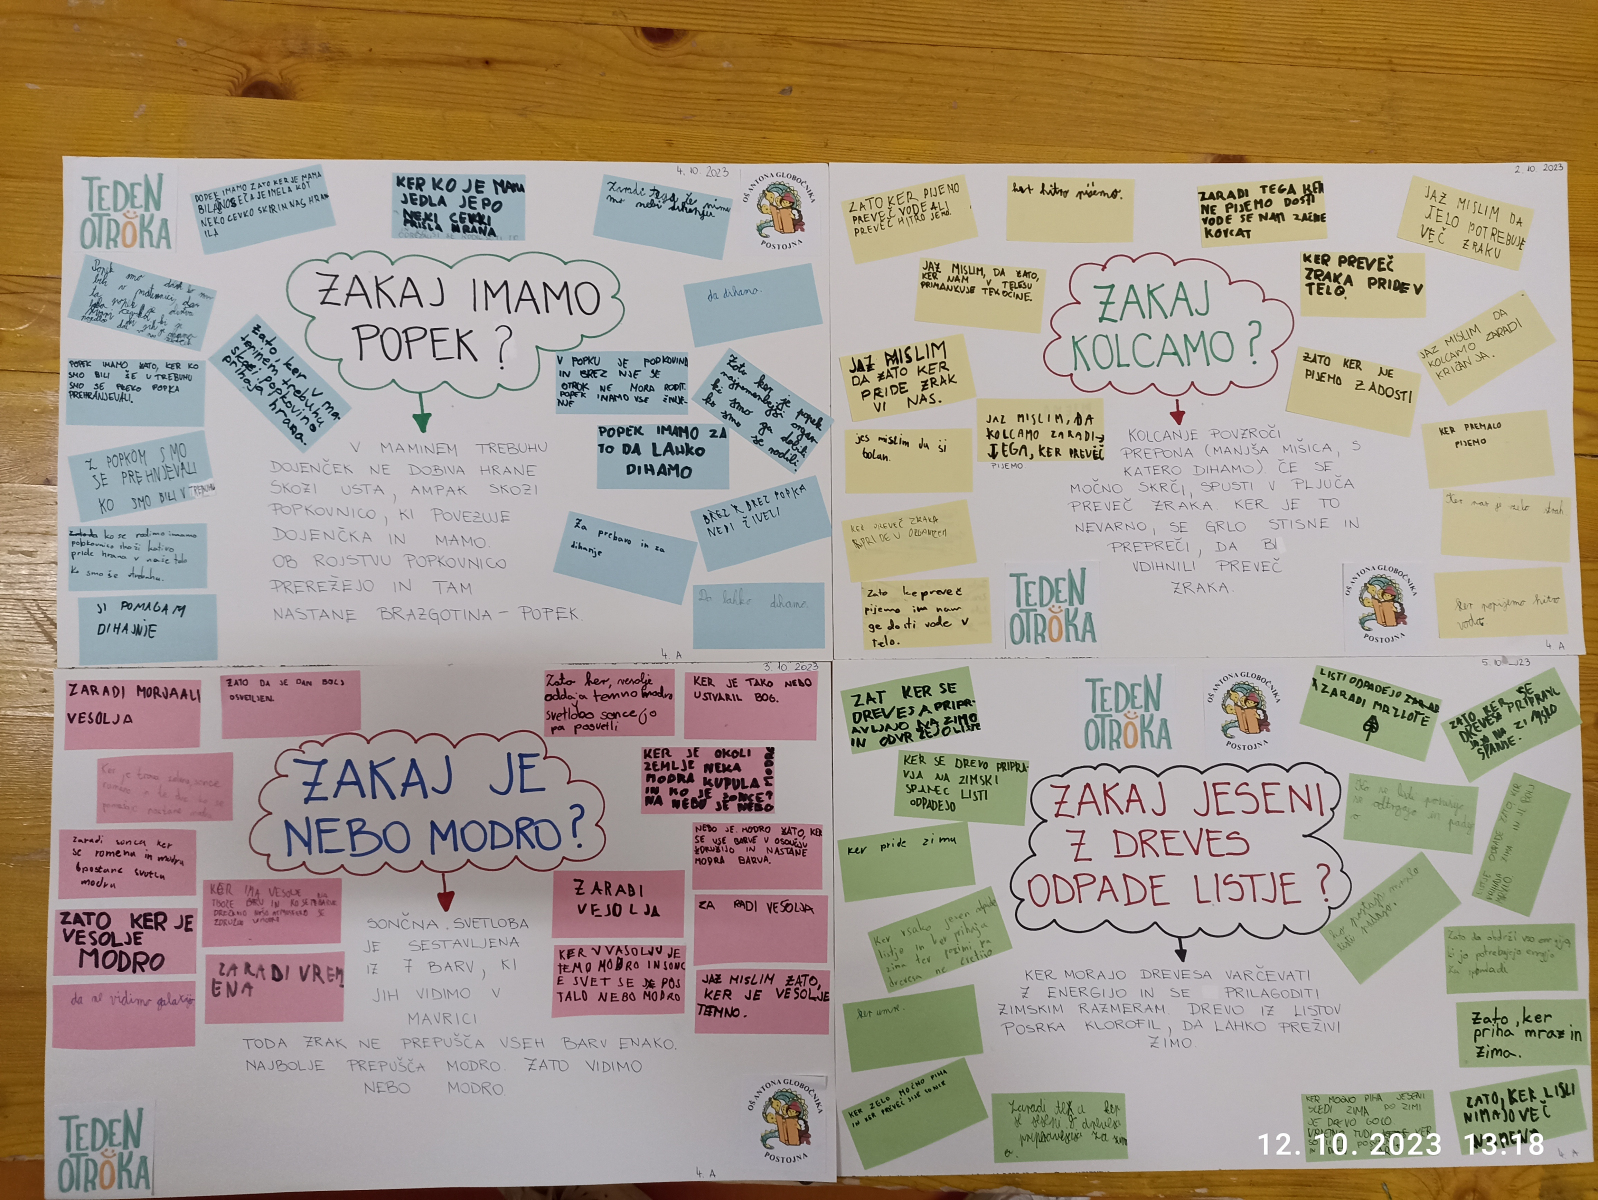 4. 10. 2023
TEDEN
OTROKA
KER KO JE MAMA
JEDLA JE PO
NEKI CEVKI
PRIŠLA HRANA
OŠ ANTONA GLOBOČNIKA
POSTOJNA
ZAKAJ IMAMO
POPEK?
da dihamo.
POPEK IMAMO ZATO, KER KO
SMO BILI ŠE V TREBUHU
SMO SE PREKO POPKA
PREHRANJEVALI.
Zato, ker v ma-
minem trebuhu
skozi popkovino
prihaja hrana.
V POPKU JE POPKOVINA
IN BREZ NJE SE
OTROK NE MORA RODIT.
POPEK IMAMO VSE ŽIVLJE
NJE
POPEK IMAMO ZA
TO DA LAHKO
DIHAMO
Z POPKOM SMO
SE PREHNJEVALI
KO SMO BILI V
V MAMINEM TREBUHU
DOJENČEK NE DOBIVA HRANE
SKOZI USTA, AMPAK SKOZI
POPKOVNICO, KI POVEZUJE
DOJENČKA IN MAMO.
OB ROJSTVU POPKOVNICO
PREREŽEJO IN TAM
NASTANE BRAZGOTINA - POPEK.
BREZ POPKA
NEBI ŽIVELI
Za prebavo in za
dihanje
ko se rodimo imamo
popkovnico skozi katero
pride hrana v naše telo
ko smo še v trebuhu.
JI POMAGAM
DIHAJNJE
Da lahko dihamo.
4. A
2. 10. 2023
ZATO KER PIJEMO
PREVEČ VODE ALI
PREVEČ HITRO JEMO.
ker hitro pijemo.
ZARADI TEGA KER
NE PIJEMO DOSTI
VODE SE NAM ZAČNE
KOLCAT
JAZ MISLIM DA
TELO POTREBUJE
VEČ ZRAKU
JAZ MISLIM, DA ZATO,
KER NAM V TELESU
PRIMANKUJE TEKOČINE.
KER PREVEČ
ZRAKA PRIDE V
TELO.
ZAKAJ
KOLCAMO?
JAZ MISLIM
DA ZATO KER
PRIDE ZRAK
VI NAS.
ZATO KER NE
PIJEMO ZADOSTI
JAZ MISLIM DA
KOLCAMO ZARADI
KRIČANJA.
JAZ MISLIM, DA
KOLCAMO ZARADI
TEGA, KER PREVEČ
PIJEMO
jes mislim da si
bolan.
KER PREMALO
PIJEMO
KOLCANJE POVZROČI
PREPONA (MANJŠA MIŠICA, S
KATERO DIHAMO) ČE SE
MOČNO SKRČI, SPUSTI V PLJUČA
PREVEČ ZRAKA. KER JE TO
NEVARNO, SE GRLO STISNE IN
PREPREČI, DA BI
VDIHNILI PREVEČ
ZRAKA.
KER PREVEČ ZRAKA
PRIDE V ORGANIZEM
Zato ke preveč
pijemo im nam
ge dosti vode v
telo.
TEDEN
OTROKA
OŠ ANTONA GLOBOČNIKA
POSTOJNA
Ker popijemo hitro
vodo
4 A
3. 10. 2023
ZARADI MORJA ALI
VESOLJA
ZATO DA JE DAN BOLJ
OSVETLJEN.
Zato ker, vesolje
oddaja temno modro
svetlobo sonce jo
pa posvetli
KER JE TAKO NEBO
USTVARIL BOG.
KER JE OKOLI
ZEMLJE NEKA
MODRA KUPULA
IN KO JE SONCE
NA NEBU JE NEBO
MODRO
ZAKAJ JE
NEBO MODRO?
zaradi sonca ker
se romena in modra
postane svetla
modra
NEBO JE MODRO ZATO, KER
SE VSE BARVE V OSOUČJU
ZDRUŽIJO IN NASTANE
MODRA BARVA.
ZATO KER JE
VESOLJE
MODRO
ZARADI
VESOLJA
ZA RADI VESOLJA
SONČNA SVETLOBA
JE SESTAVLJENA
IZ 7 BARV, KI
JIH VIDIMO V
MAVRICI
TODA ZRAK NE PREPUŠČA VSEH BARV ENAKO.
NAJBOLJE PREPUŠČA MODRO. ZATO VIDIMO
NEBO MODRO.
ZARADI VREM
ENA
KER V VASOLJU JE
TEMO MODRO IN SONC
E SVET SE JE POS
TALO NEBO MODRO
JAZ MISLIM ZATO,
KER JE VESOLJE
TEMNO.
da ne vidimo galaksijo
TEDEN
OTROKA
OŠ ANTONA GLOBOČNIKA
POSTOJNA
4. A
5. 10.
ZAT KER SE
DREVESA PRIPR
AVLJAJO NA ZIMO
IN ODVRŽEJO LISTJE
TEDEN
OTROKA
OŠ ANTONA GLOBOČNIKA
POSTOJNA
LISTI ODPADEJO
ZARADI MRZLOTE
ZATO KER SE
DREVESA PRIPRAVL
JAJO NA ZIMSKO
SPANJE.
KER SE DREVO PRIPRA
VJA NA ZIMSKI
SPANEC LISTI
ODPADEJO
ZAKAJ JESENI
Z DREVES
ODPADE LISTJE?
ker pride zima
KER MORAJO DREVESA VARČEVATI
Z ENERGIJO IN SE PRILAGODITI
ZIMSKIM RAZMERAM. DREVO IZ LISTOV
POSRKA KLOROFIL, DA LAHKO PREŽIVI
ZIMO.
ker umre.
Zato, ker
priha mraz in
zima.
KER ZELO MOČNO PIHA
ZATO, KER LISTI
NIMAJO VEČ
NAMENA
4. A
12. 10. 2023 13:18